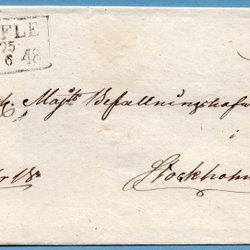 FLE
25
6 48
Maj:ts Befallningshafv
i
Stockholm